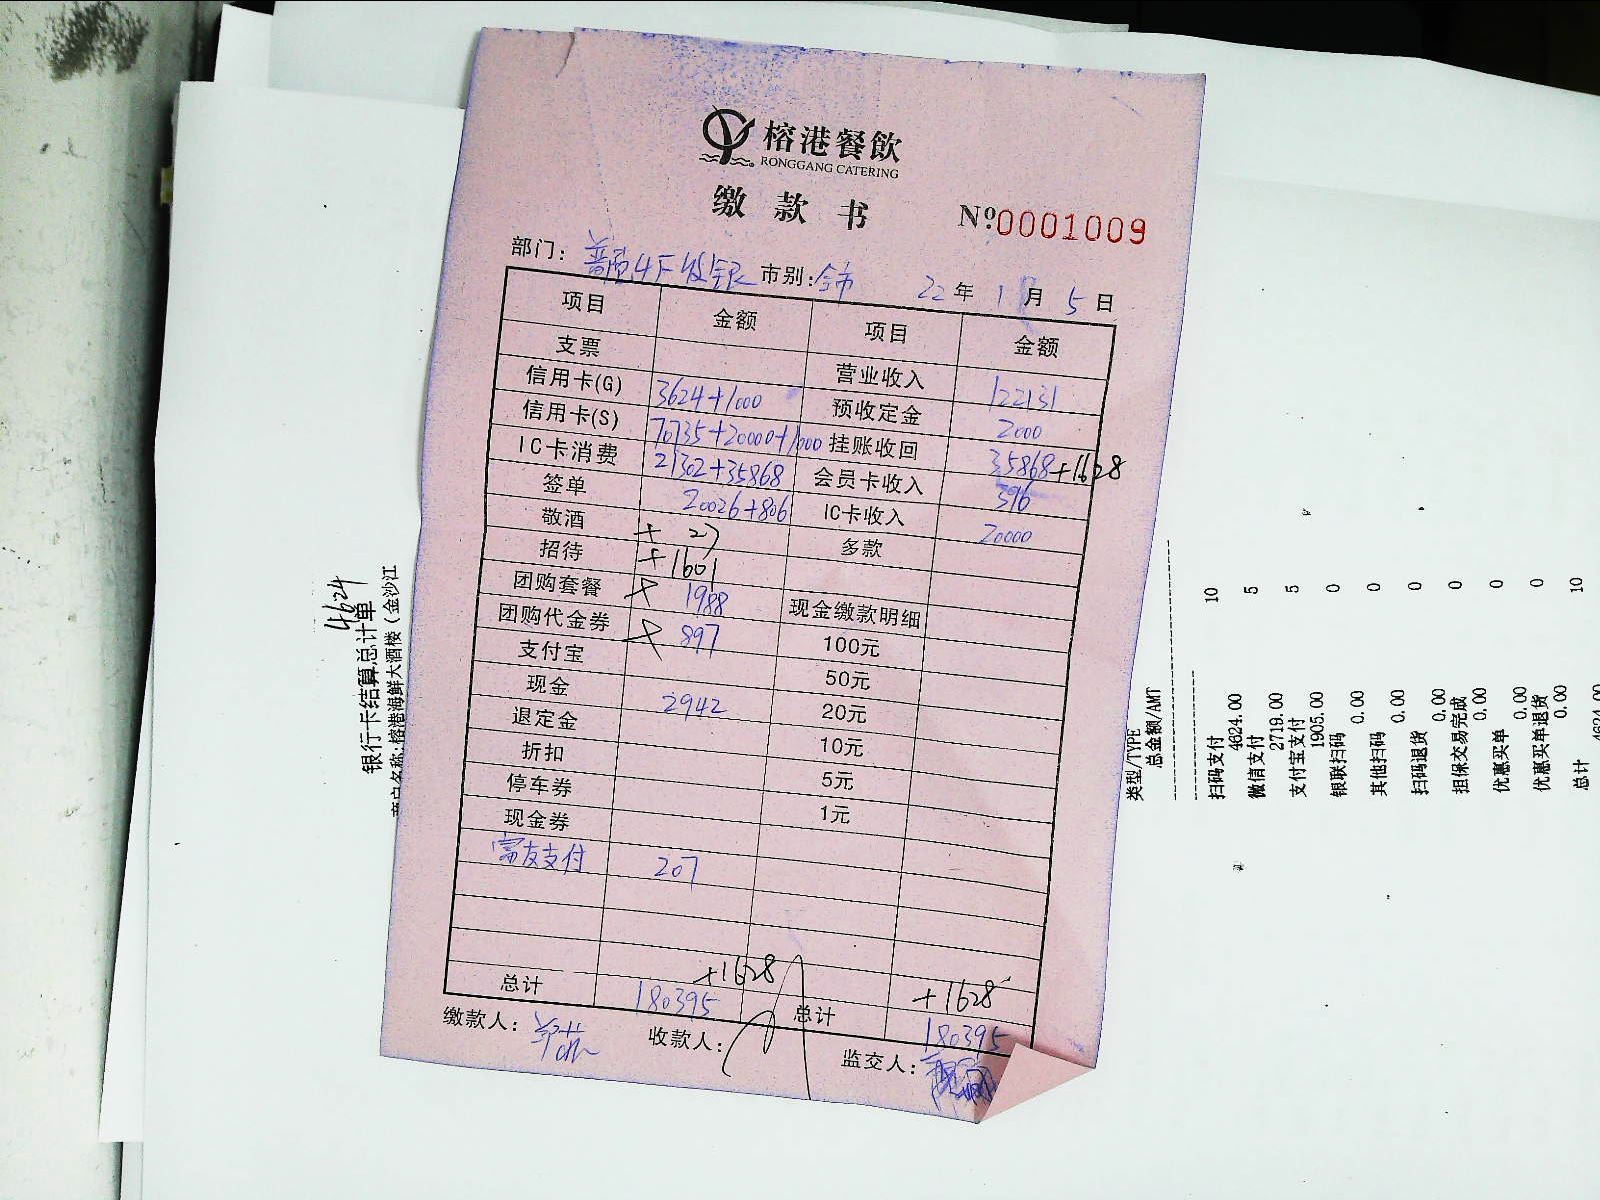 榕港餐飲
RONGGANG CATERING
缴款书 №0001009
部门: 普陀4F收银 市别: 全市 22年1月5日
项目 金额 项目 金额
支票 营业收入 122131
信用卡(G) 3624+1000 预收定金 2000
信用卡(S) 70735+20000+1000 挂账收回 35868+1628
IC卡消费 21302+35868 会员卡收入 396
签单 20026+806 IC卡收入 20000
敬酒 + 27 多款
招待 +1601
团购套餐 1988 现金缴款明细
团购代金券 897 100元
支付宝 50元
现金 2942 20元
退定金 10元
折扣 5元
停车券 1元
现金券
富友支付 207
总计 180395 +1628 总计 180395 +1628
缴款人:
收款人:
监交人:
4624
银行卡结算总计单
商户名称:榕港海鲜大酒楼(金沙江
类型/TYPE
总金额/AMT
扫码支付 10
4624.00
微信支付 5
2719.00
支付宝支付 5
1905.00
银联扫码 0
0.00
其他扫码 0
0.00
扫码退货 0
0.00
担保交易完成 0
0.00
优惠买单 0
0.00
优惠买单退货 0
0.00
总计 10
4624.00